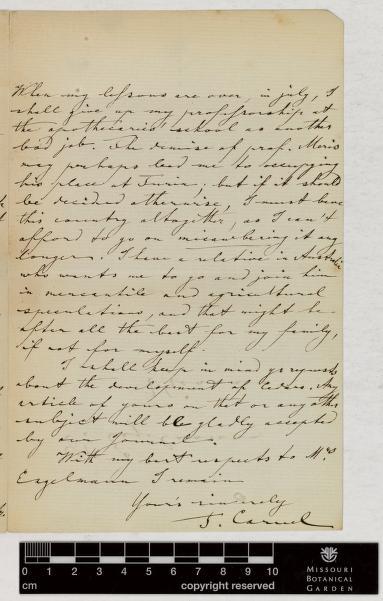 When my lessons are over, in july, I
shall give up my professorship at
the apothecaries' school as another
bad job. The demise of prof. Moris
may perhaps lead me to occupying
his place at Turin; but if it should
be decided otherwise, I must leave
this country altogether, as I can't
afford to go on it any
longer. I have a relative in Australia
who wants me to go and join him
in mercantile and agricultural
speculations, and that might be
after all the best for my family,
if not for myself.
I shall keep in mind yr requests
about the development of . Any
article of yours on that or any other
subject will be gladly accepted
by our Journal.
With my best respects to Mrs
Engelmann I remain
Yours sincerely
T. Caruel
0 1 2 3 4 5 6 7 8 9 10
cm copyright reserved
MISSOURI
BOTANICAL
GARDEN